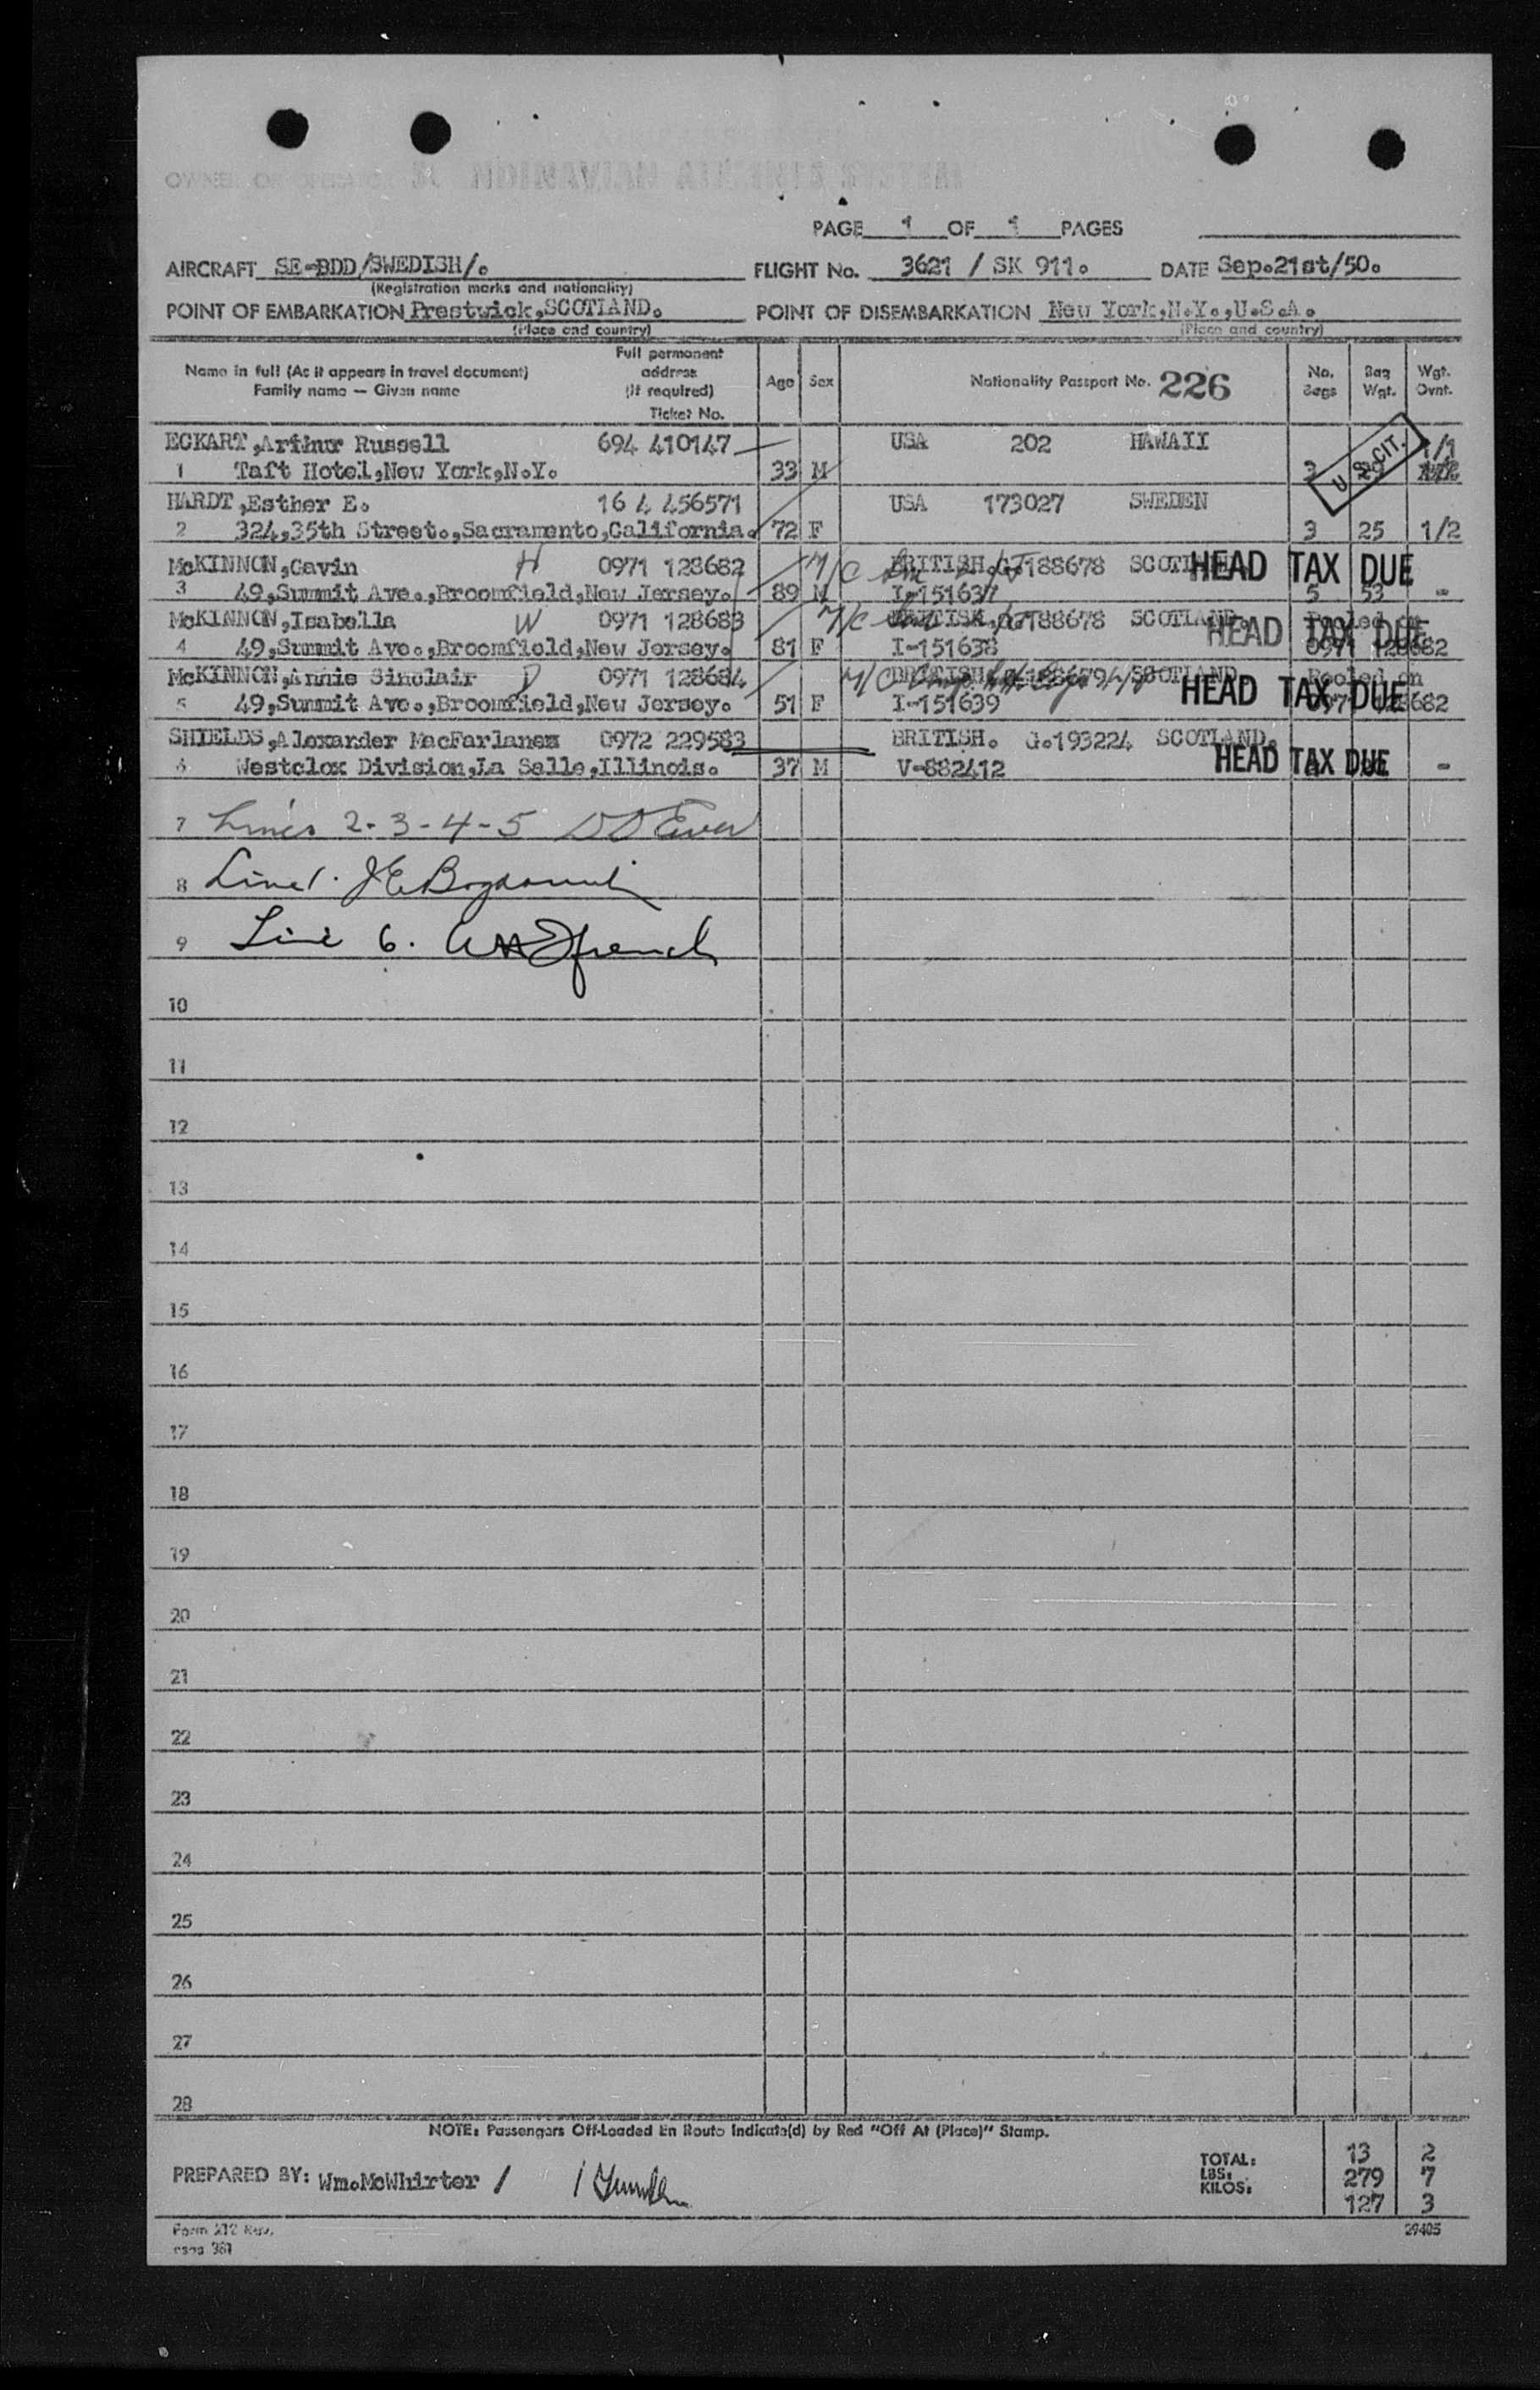 OWNER OR OPERATOR
PAGE 1 OF 1 PAGES
AIRCRAFT SE-BDD/SWEDISH/. FLIGHT No. 3621 / SK 911. DATE Sep.21st/50.
(Registration marks and nationality)
POINT OF EMBARKATION Prestwick,SCOTLAND. POINT OF DISEMBARKATION New York,N.Y.,U.S.A.
(Place and country) (Place and country)
Name in full (As it appears in travel document) Family name — Given name Full permanent address (if required) Ticket No. Age Sex Nationality Passport No. 226 No. Bags Bag Wgt. Wgt. Ovnt.
ECKART,Arthur Russell 694 410147 USA 202 HAWAII 1/1
1 Taft Hotel,New York,N.Y. 33 M 3 U.S.CIT.
HARDT,Esther E. 16 4 456571 USA 173027 SWEDEN
2 324,35th Street.,Sacramento,California. 72 F 3 25 1/2
McKINNON,Gavin H 0971 128682 BRITISH. 188678 HEAD TAX DUE
3 49,Summit Ave.,Broomfield,New Jersey. 89 M I-151637 5 53 -
McKINNON,Isabella W 0971 128683 BRITISH. 188678 SCOTLAND. Pooled on HEAD TAX DUE
4 49,Summit Ave.,Broomfield,New Jersey. 81 F I-151638 0971 128682
McKINNON,Annie Sinclair D 0971 128684 BRITISH 188679 SCOTLAND Pooled on HEAD TAX DUE
5 49,Summit Ave.,Broomfield,New Jersey. 51 F I-151639 0971 128682
SHIELDS,Alexander MacFarlane 0972 229583 BRITISH. G.193224 SCOTLAND.
6 Westclox Division,La Salle,Illinois. 37 M V-882412 HEAD TAX DUE -
7 Lines 2-3-4-5
8 Line 1.
9 Line 6.
10
11
12
13
14
15
16
17
18
19
20
21
22
23
24
25
26
27
28
NOTE: Passengers Off-Loaded En Route Indicate(d) by Red "Off At (Place)" Stamp.
PREPARED BY: Wm.McWhirter /
TOTAL: 13 2
LBS: 279 7
KILOS: 127 3
Form 212 Rev. 29405